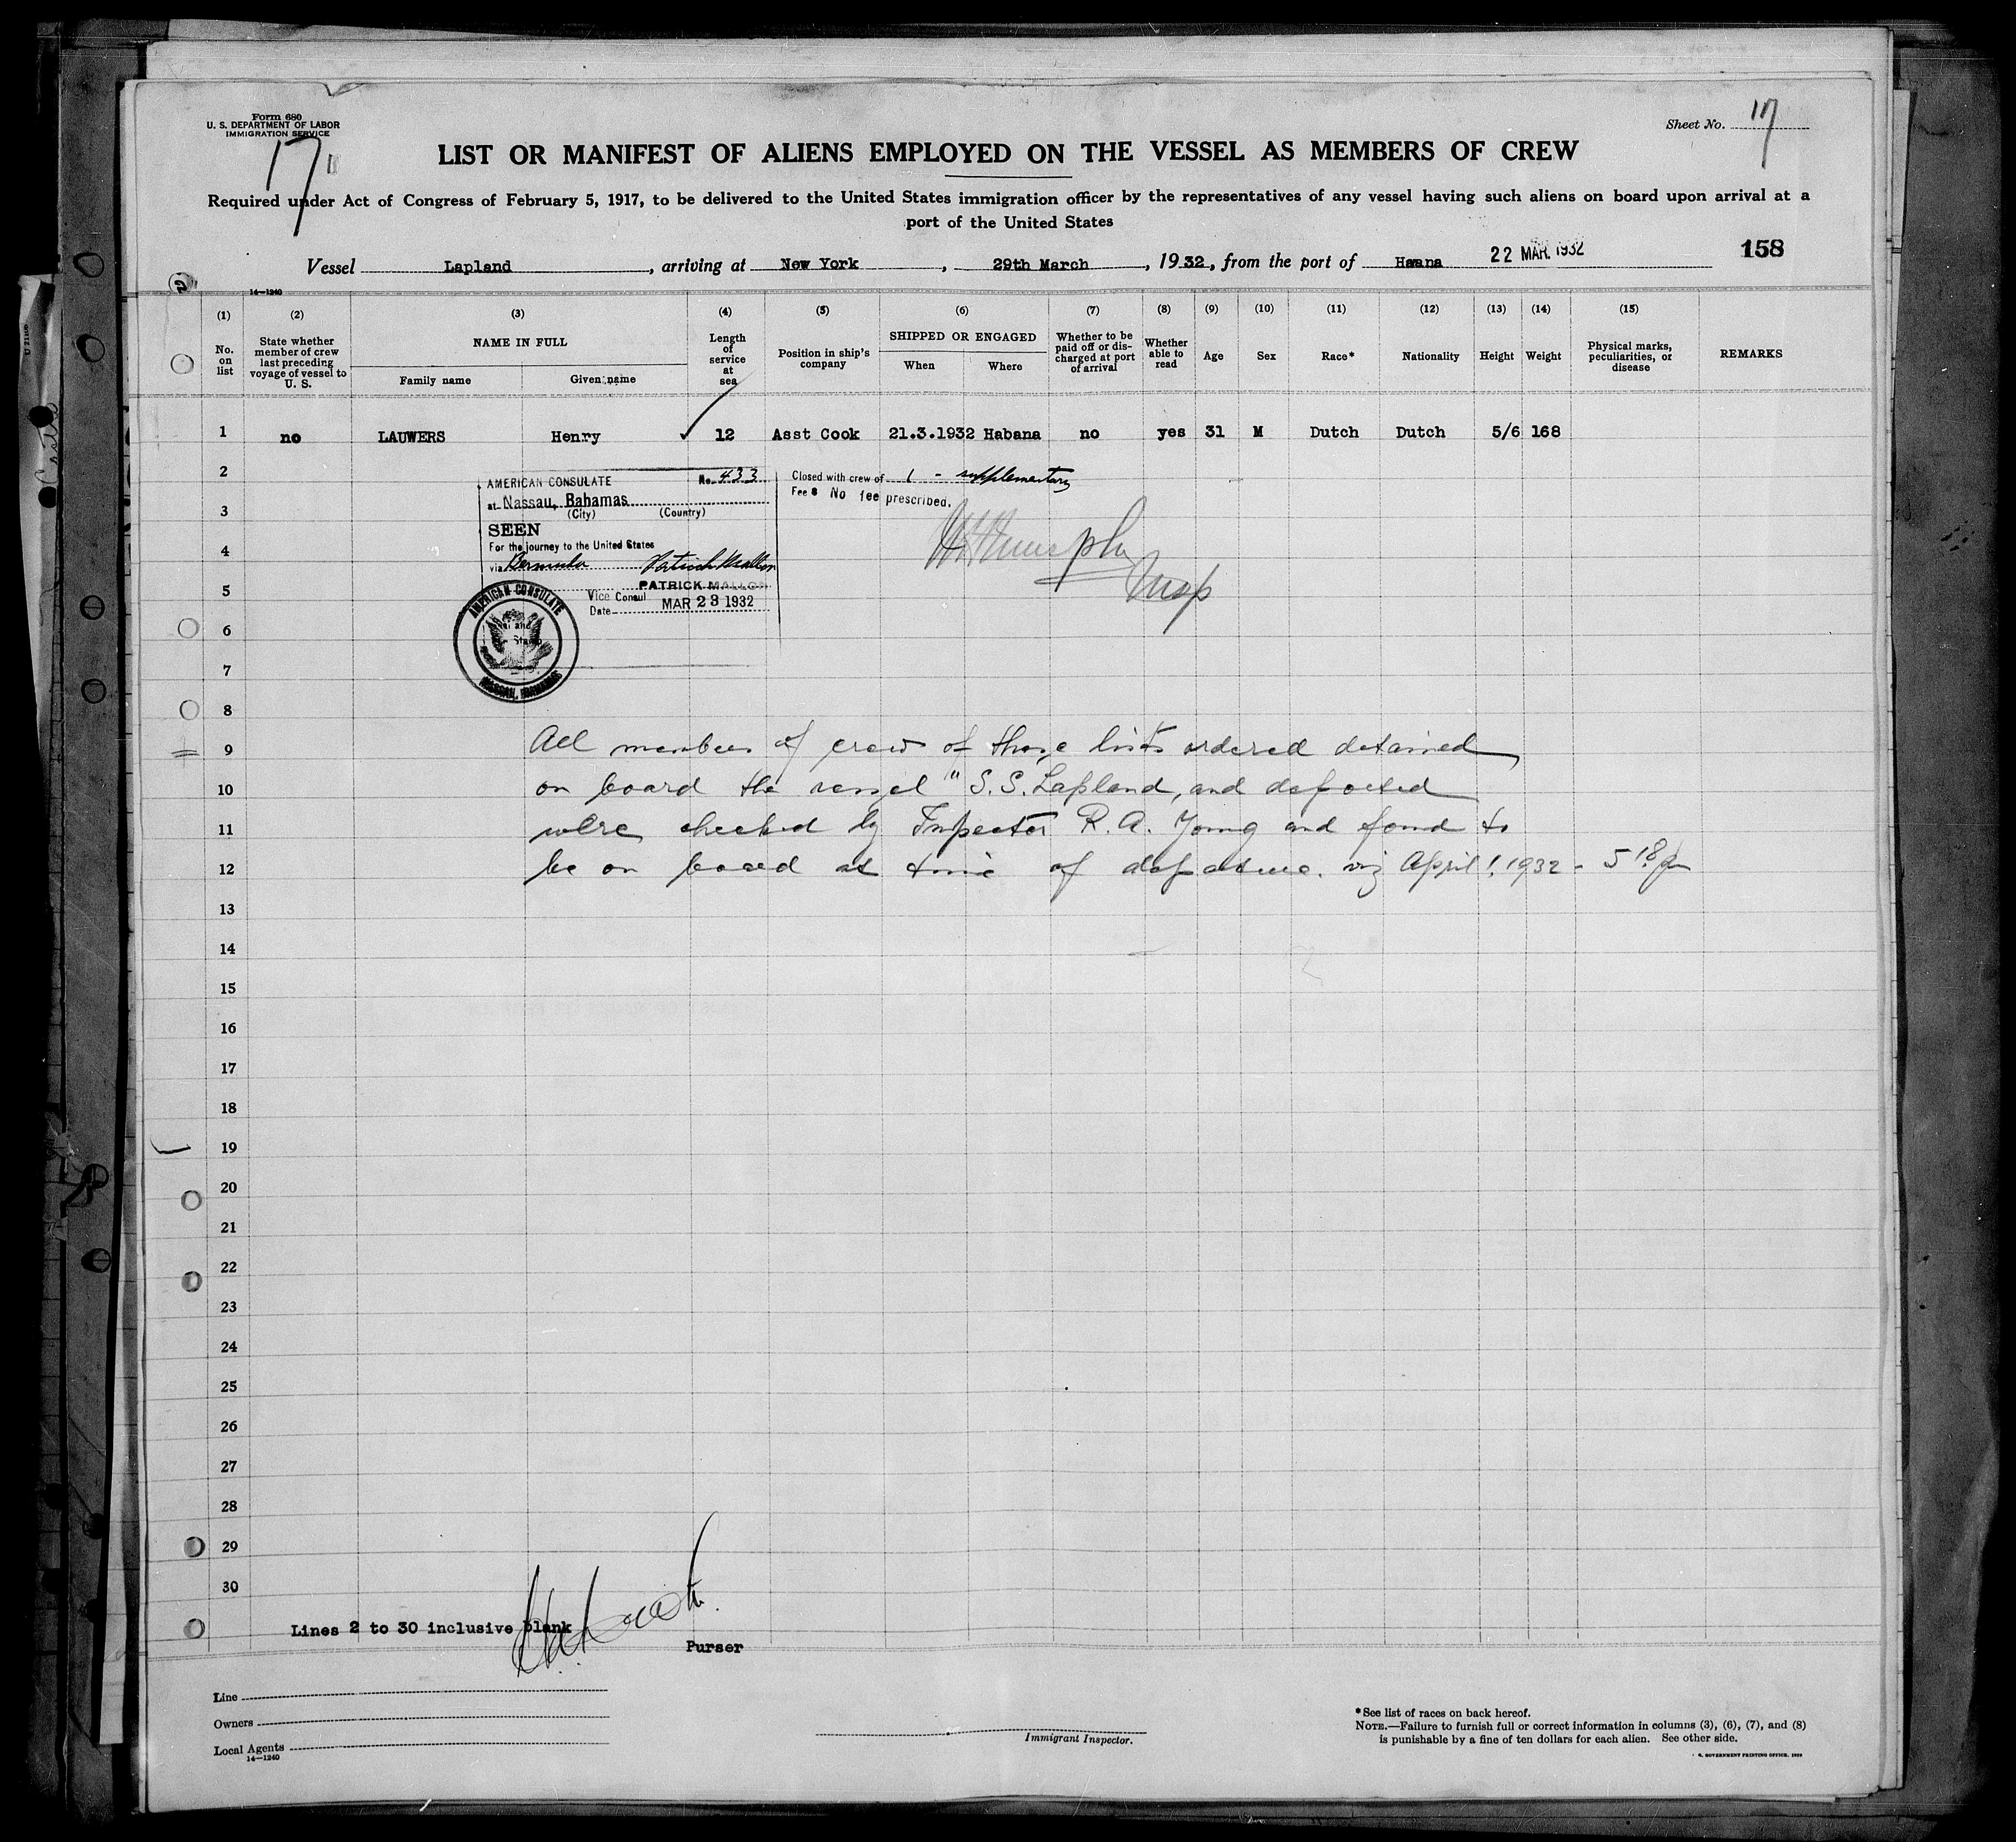 Form 680
U. S. DEPARTMENT OF LABOR
IMMIGRATION SERVICE
17
Sheet No. 17
LIST OR MANIFEST OF ALIENS EMPLOYED ON THE VESSEL AS MEMBERS OF CREW
Required under Act of Congress of February 5, 1917, to be delivered to the United States immigration officer by the representatives of any vessel having such aliens on board upon arrival at a
port of the United States
158
Vessel Lapland, arriving at New York, 29th March, 1932, from the port of Havana 22 MAR. 1932
14—1240
(1) (2) (3) (4) (5) (6) (7) (8) (9) (10) (11) (12) (13) (14) (15)
No. on list
State whether member of crew last preceding voyage of vessel to U. S.
NAME IN FULL
Family name Given name
Length of service at sea
Position in ship's company
SHIPPED OR ENGAGED
When Where
Whether to be paid off or discharged at port of arrival
Whether able to read
Age
Sex
Race*
Nationality
Height
Weight
Physical marks, peculiarities, or disease
REMARKS
1 no LAUWERS Henry 12 Asst Cook 21.3.1932 Habana no yes 31 M Dutch Dutch 5/6 168
2
3
4
5
6
7
8
9
10
11
12
13
14
15
16
17
18
19
20
21
22
23
24
25
26
27
28
29
30
AMERICAN CONSULATE No. 433
at Nassau, Bahamas
(City) (Country)
SEEN
For the journey to the United States
via Bermuda Patrick Mallon
PATRICK MALLON
Vice Consul
Date MAR 23 1932
AMERICAN CONSULATE
NASSAU, BAHAMAS
Closed with crew of 1 - supplementary
Fee $ No fee prescribed.
Insp
All members of crew of these lists ordered detained
on board the vessel "S.S. Lapland, and deported
were checked by Inspector R. A. Young and found to
be on board at time of departure. viz April 1, 1932 - 5 18 pm
Lines 2 to 30 inclusive blank
Purser
Line
Owners
Local Agents
14—1240
Immigrant Inspector.
*See list of races on back hereof.
NOTE.—Failure to furnish full or correct information in columns (3), (6), (7), and (8)
is punishable by a fine of ten dollars for each alien. See other side.
GOVERNMENT PRINTING OFFICE. 1929